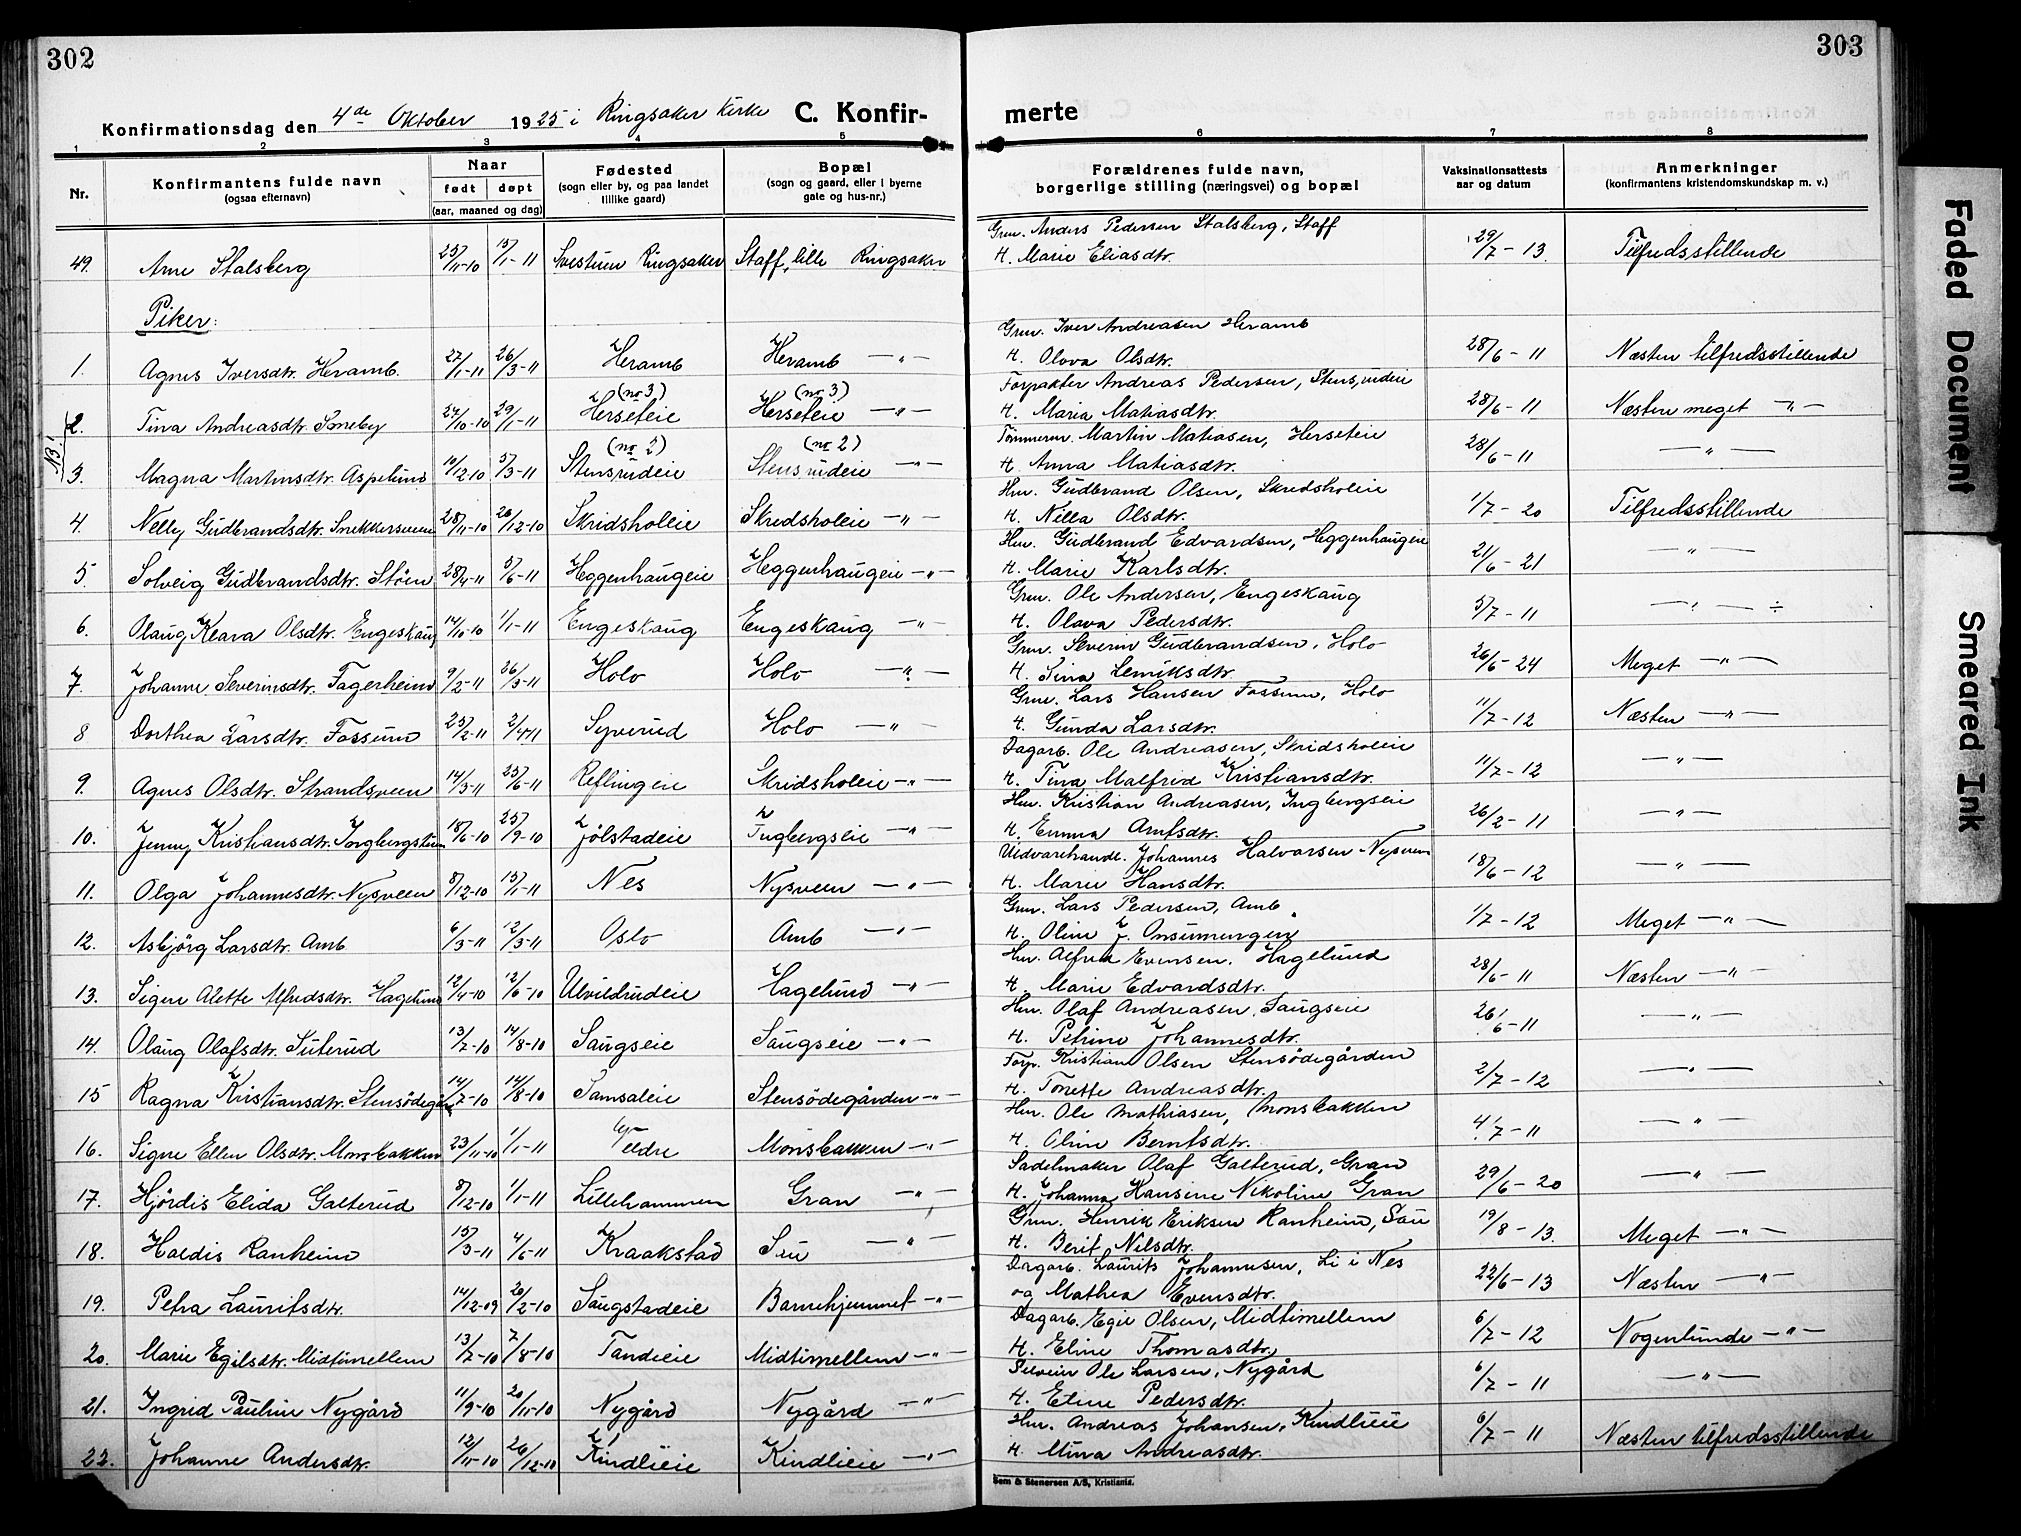 302
303
Konfirmationsdag den 4de Oktober 1925 i Ringsaker Kirke C. Konfir-
merte
1 2 3 4 5 6 7 8
Nr. Konfirmantens fulde navn (ogsaa efternavn) Naar født døpt (aar, maaned og dag) Fødested (sogn eller by, og paa landet tillike gaard) Bopæl (sogn og gaard, eller i byerne gate og hus-nr.) Forældrenes fulde navn, borgerlige stilling (næringsvei) og bopæl Vaksinationsattests aar og datum Anmerkninger (konfirmantens kristendomskundskap m. v.)
Grm. Anders Pedersen Stalsberg, Staff
49. Arne Stalsberg 25/11-10 15/1-11 Ringsaker Staff, lille Ringsaker H. Marie Eliasdtr. 29/7-13 Tilfredsstillende
Piker:
Grm. Iver Andreasen Heramb
1. Agnes Iversdtr. Heramb. 27/1-11 26/3-11 Heramb Heramb —"— H. Olava Olsdtr. 28/6-11 Næsten tilfredsstillende
(no 3) (no 3) Forpakter Andreas Pedersen, Stensrudeie
NB! 2. Tina Andreasdtr. Smeby 24/10-10 29/1-11 Herseteie Herseteie —"— H. Maria Matiasdtr. 28/6-11 Næsten meget —"—
(no 2) (no 2) Tømmerm. Martin Matiasen, Herseteie
3. Magna Martinsdtr. Aspelund 10/12-10 5/3-11 Stensrudeie Stensrudeie —"— H. Anna Matiasdtr. 28/6-11 —"—
Hm. Gudbrand Olsen, Skredsholeie
4. Nelly Gudbrandsdtr. Snekkersveen 28/11-10 26/12-10 Skridsholeie Skredsholeie —"— H. Nilla Olsdtr. 1/7-20 Tilfredsstillende
Hm. Gudbrand Edvardsen, Heggenhaugeie
5. Solveig Gudbrandsdtr. Støen 28/4-11 5/6-11 Heggenhaugeie Heggenhaugeie —"— H. Marie Karlsdtr. 21/6-21 —"—
Grm. Ole Andersen, Engeskaug
6. Olaug Klara Olsdtr. Engeskaug 14/10-10 1/1-11 Engeskaug Engeskaug —"— H. Olava Pedersdtr. 5/7-11 —"— ÷
Grm. Severin Gudbrandsen, Holo
7. Johanne Severinsdtr. Fagerheim 9/2-11 26/3-11 Holo Holo —"— H. Sina Lemiksdtr. 26/6-24 Meget —"—
Grm. Lars Hansen Fossum, Holo
8 Dorthea Larsdtr. Fossum 25/2-11 2/4-11 Syverud Holo —"— H. Gunda Larsdtr. 11/7-12 Næsten —"—
Dagarb. Ole Andreasen, Skridsholeie
9. Agnes Olsdtr. Strandsveen 14/3-11 25/6-11 Reflingeie Skridsholeie —"— H. Tina Malfred Kristiansdtr. 11/7-12 —"—
Hm. Kristian Andreasen, Ingbergseie
10. Jenny Kristiansdtr. 18/6-10 25/9-10 Jølstadeie Ingbergseie —"— H. Emma Arntsdtr. 26/2-11 —"—
Uldvarehandl. Johannes Halvorsen Nysveen
11. Olga Johannesdtr. Nysveen 8/12-10 15/1-11 Nes Nysveen —"— H. Marie Hansdtr. 18/6-12 —"—
Grm. Lars Pedersen, Amb
12. Asbjörg Larsdtr. Amb 6/3-11 12/3-11 Oslo Amb —"— H. Oline J. 1/7-12 Meget —"—
Hm. Alfred Evensen. Hagelund
13. Signe Alette Alfredsdtr. Hagelund 12/4-10 12/6-10 Ulvildrudeie Hagelund —"— H. Marie Edvardsdtr. 28/6-11 Næsten —"—
Hm. Olaf Andreasen, Saugseie
14. Olaug Olafsdtr. Suterud 13/7-10 14/8-10 Saugseie Saugseie —"— H. Petrine Johannesdtr. 26/6-11 —"—
Forp. Kristian Olsen Stensödegården
15 Ragna Kristiansdtr. Stensödegård 14/7-10 14/8-10 Samsaleie Stensödegården —"— H. Torette Andreasdtr. 2/7-12 —"—
Hm. Ole Mathiasen, Monsbakken
16. Signe Ellen Olsdtr. Monsbakken 23/11-10 1/1-11 Veldre Monsbakken —"— H. Oline Berntsdtr. 4/7-11 —"—
Sadelmaker Olaf Galterud, Gran
17. Hjördis Elida Galterud 8/12-10 1/1-11 Lillehammer Gran —"— H. Johanna Hansine Nikoline Gran 29/6-20 —"—
Grm. Henrik Eriksen Ranheim, Sau
18. Haldis Ranheim 15/3-11 4/6-11 Kraakstad Su —"— H. Berit Nilsdtr. 19/8-13. Meget —"—
Dagarb. Laurits Johannesen, Li i Nes
19. Petra Lauritsdtr. 14/12-09 20/2-10 Saugstadeie Barnehjemmet —"— og Mathea Evensdtr. 22/6-13 Næsten —"—
Dagarb. Egil Olsen, Midtimellem
20. Marie Egilsdtr. Midtimellem 13/7-10 7/8-10 Tandeie Midtimellem —"— H. Eline Thomasdtr. 6/7-12 Nogenlunde —"—
Selveier Ole Larsen, Nygård
21. Ingrid Pauline Nygård 11/9-10 20/11-10 Nygård Nygård —"— H. Eline Pedersdtr. 6/7-11 —"—
Hm. Andreas Johansen, Kindlieie
22. Johanne Andersdtr. 12/11-10 26/12-10 Kindlieie Kindlieie —"— H. Mina Andreasdtr. 6/7-11 Næsten tilfredsstillende
Sem & Stenersen A/S, Kristiania.
Faded Document
Smeared Ink